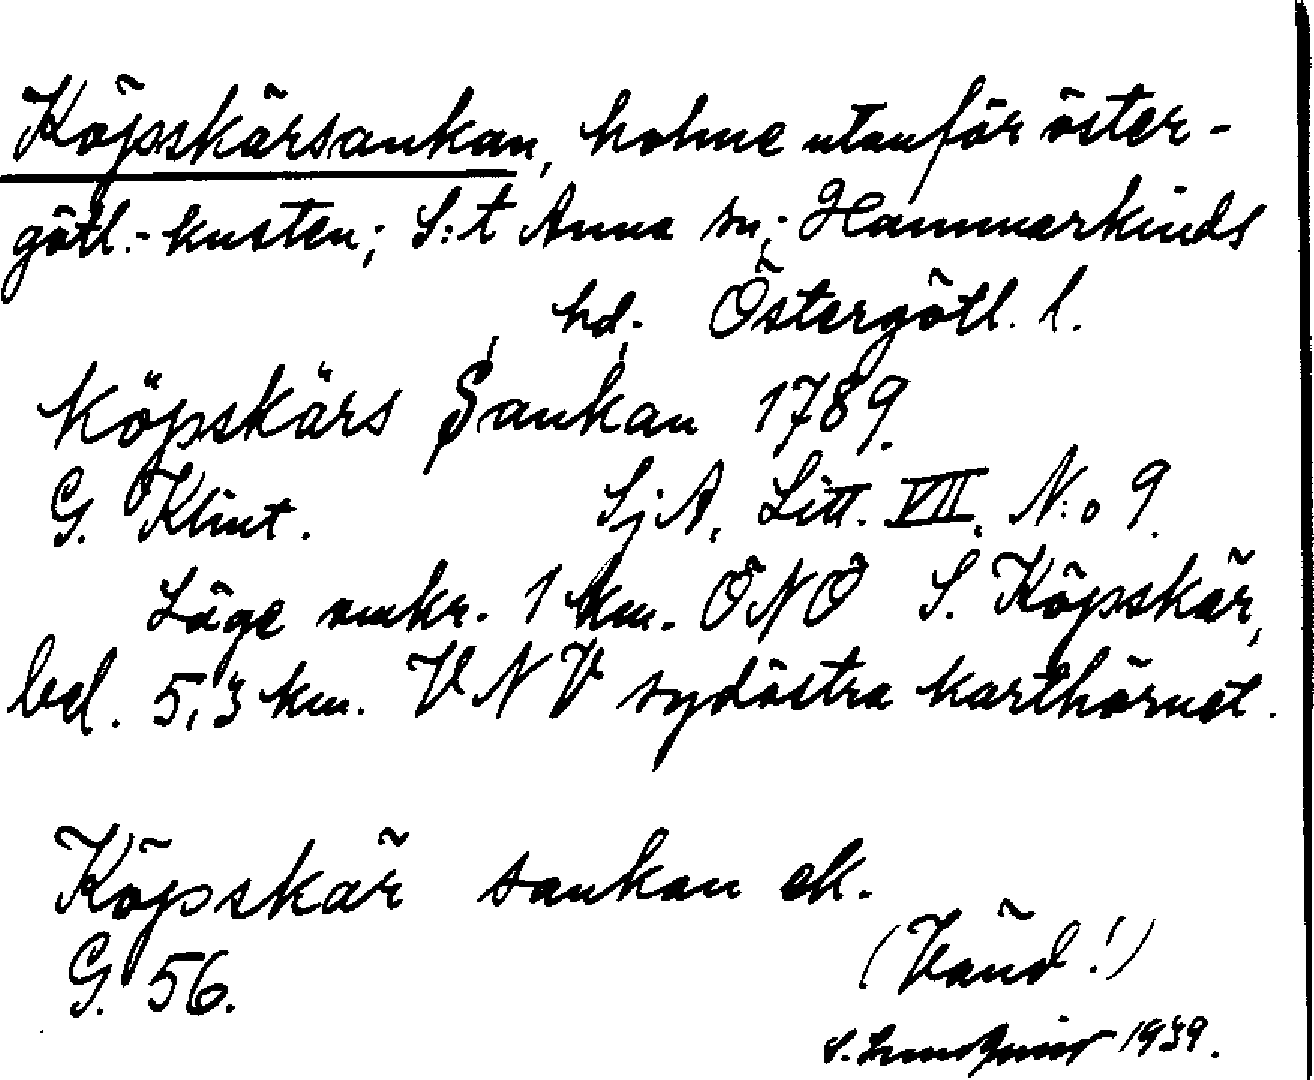 Köpskärsankan, holme utanför öster-
götl.-kusten; S:t Anna sn; Hammarkinds
hd. Östergötl. l.
Köpskärs Sankan 1789.
G. Klint. SjA, Litt. VII. N:o 9.
Läge omkr. 1 km. ONO S. Köpskär,
bel. 5,3 km. VNV sydöstra karthörnet.
Köpskär sankan ek.
G. 56.
(Vänd!)
S. Lundquist 1939.